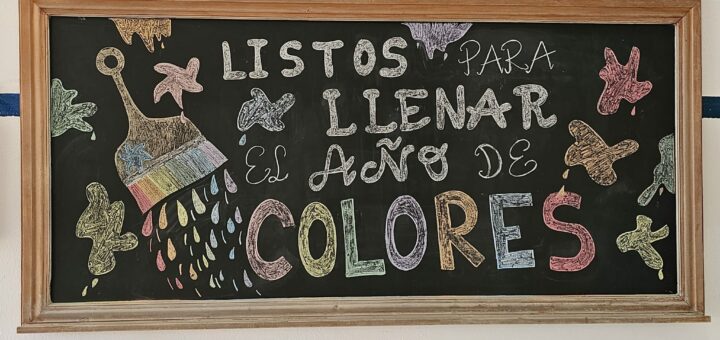 LISTOS PARA
LLENAR
EL AÑO DE
COLORES